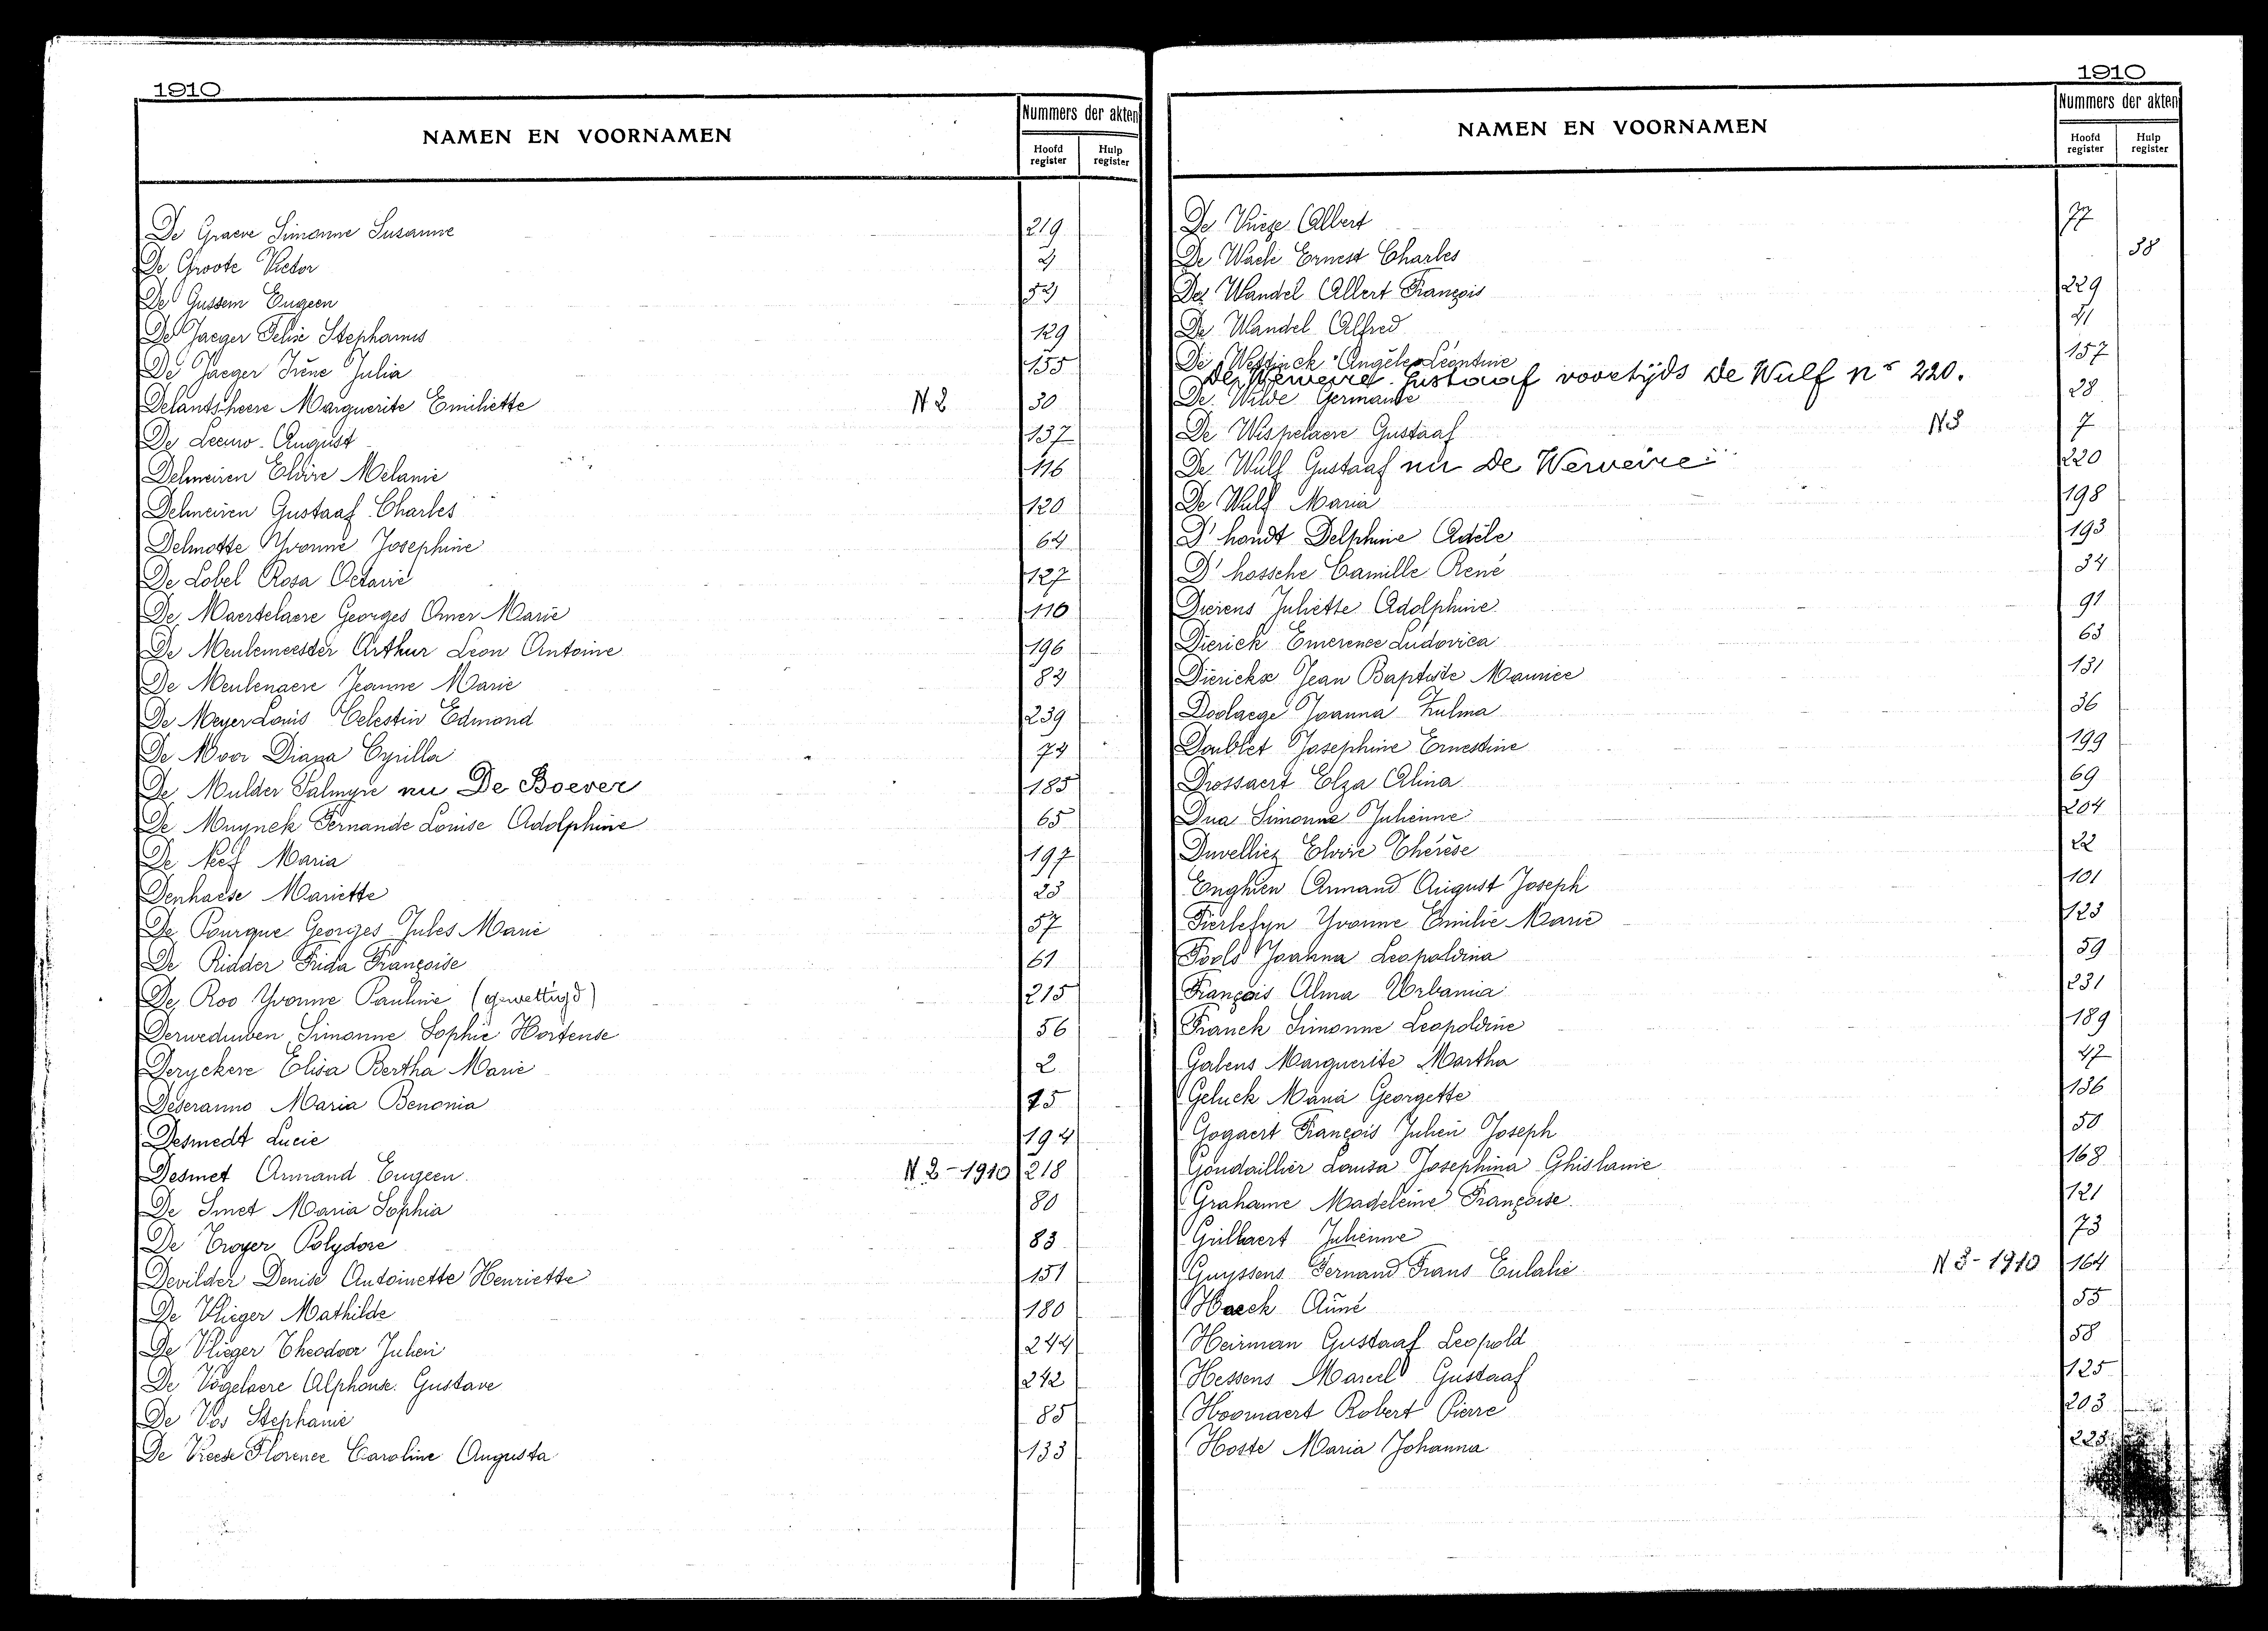 1910
NAMEN EN VOORNAMEN
Nummers der akten
Hoofd register
Hulp register
De Graeve Simonne Susanne 219
De Groote Victor 4
De Gussem Eugeen 54
De Jaeger Felix Stephanus 129
De Jaeger Irène Julia 155
Delantsheere Marguerite Emiliette N 2 30
De Leeuw August 137
Delmeiren Elvire Melanie 116
Delmeiren Gustaaf Charles 120
Delmotte Yvonne Josephine 64
De Lobel Rosa Octavie 127
De Maertelaere Georges Omer Marie 110
De Meulemeester Arthur Leon Antoine 196
De Meulenaere Jeanne Marie 84
De Meyer Louis Celestin Edmond 239
De Moor Diana Cyrilla 74
De Mulder Palmyre nu De Boever 185
De Muynck Fernande Louise Adolphine 65
De Neef Maria 197
Denhaese Mariette 23
De Pourque Georges Jules Marie 57
De Ridder Frida Françoise 61
De Roo Yvonne Pauline (gewettigd) 215
Derweduwen Simonne Sophie Hortense 56
Deryckere Elisa Bertha Marie 2
Deseranno Maria Benonia 75
Desmedt Lucie 194
Desmet Armand Eugeen N 2-1910 218
De Smet Maria Sophia 80
De Troyer Polydore 83
Devilder Denise Antoinette Henriette 151
De Vlieger Mathilde 180
De Vlieger Theodoor Julien 244
De Vogelaere Alphonse Gustave 242
De Vos Stephanie 85
De Vreese Florence Caroline Augusta 133
1910
NAMEN EN VOORNAMEN
Nummers der akten
Hoofd register
Hulp register
De Vuige Albert 77
De Waele Ernest Charles 38
De Wandel Albert François 229
De Wandel Alfred 41
De Westinck Angèle Léontine 157
De Werveire Gustaaf voortijds de Wulf nr 220.
De Wilde Germaine 28
De Wispelaere Gustaaf N3 7
De Wulf Gustaaf nu De Werveire 220
De Wulf Maria 198
D'hondt Delphine Adèle 193
D'hossche Camille René 34
Dierens Juliette Adolphine 91
Dierick Emerence Ludovica 63
Dierickx Jean Baptiste Maurice 131
Doolaege Joanna Zulma 36
Doublet Josephine Ernestine 199
Drossaert Elza Alina 69
Dua Simonne Julienne 204
Duvelliez Elvire Thérèse 22
Enghien Armand August Joseph 101
Fierlefyn Yvonne Emilie Marie 123
Fools Joanna Leopoldina 59
François Alma Urbania 231
Franck Simonne Leopoldine 189
Gabens Marguerite Martha 47
Geluck Maria Georgette 136
Gogaert François Julien Joseph 50
Gondaillier Louisa Josephina Ghislanie 168
Grahame Madeleine Françoise 121
Grillaert Julienne 73
Guyssens Fernand Frans Eulalie N 3-1910 164
Haeck Aimé 55
Heirman Gustaaf Leopold 58
Hessens Marcel Gustaaf 125
Hoornaert Robert Pierre 203
Hoste Maria Johanna 223